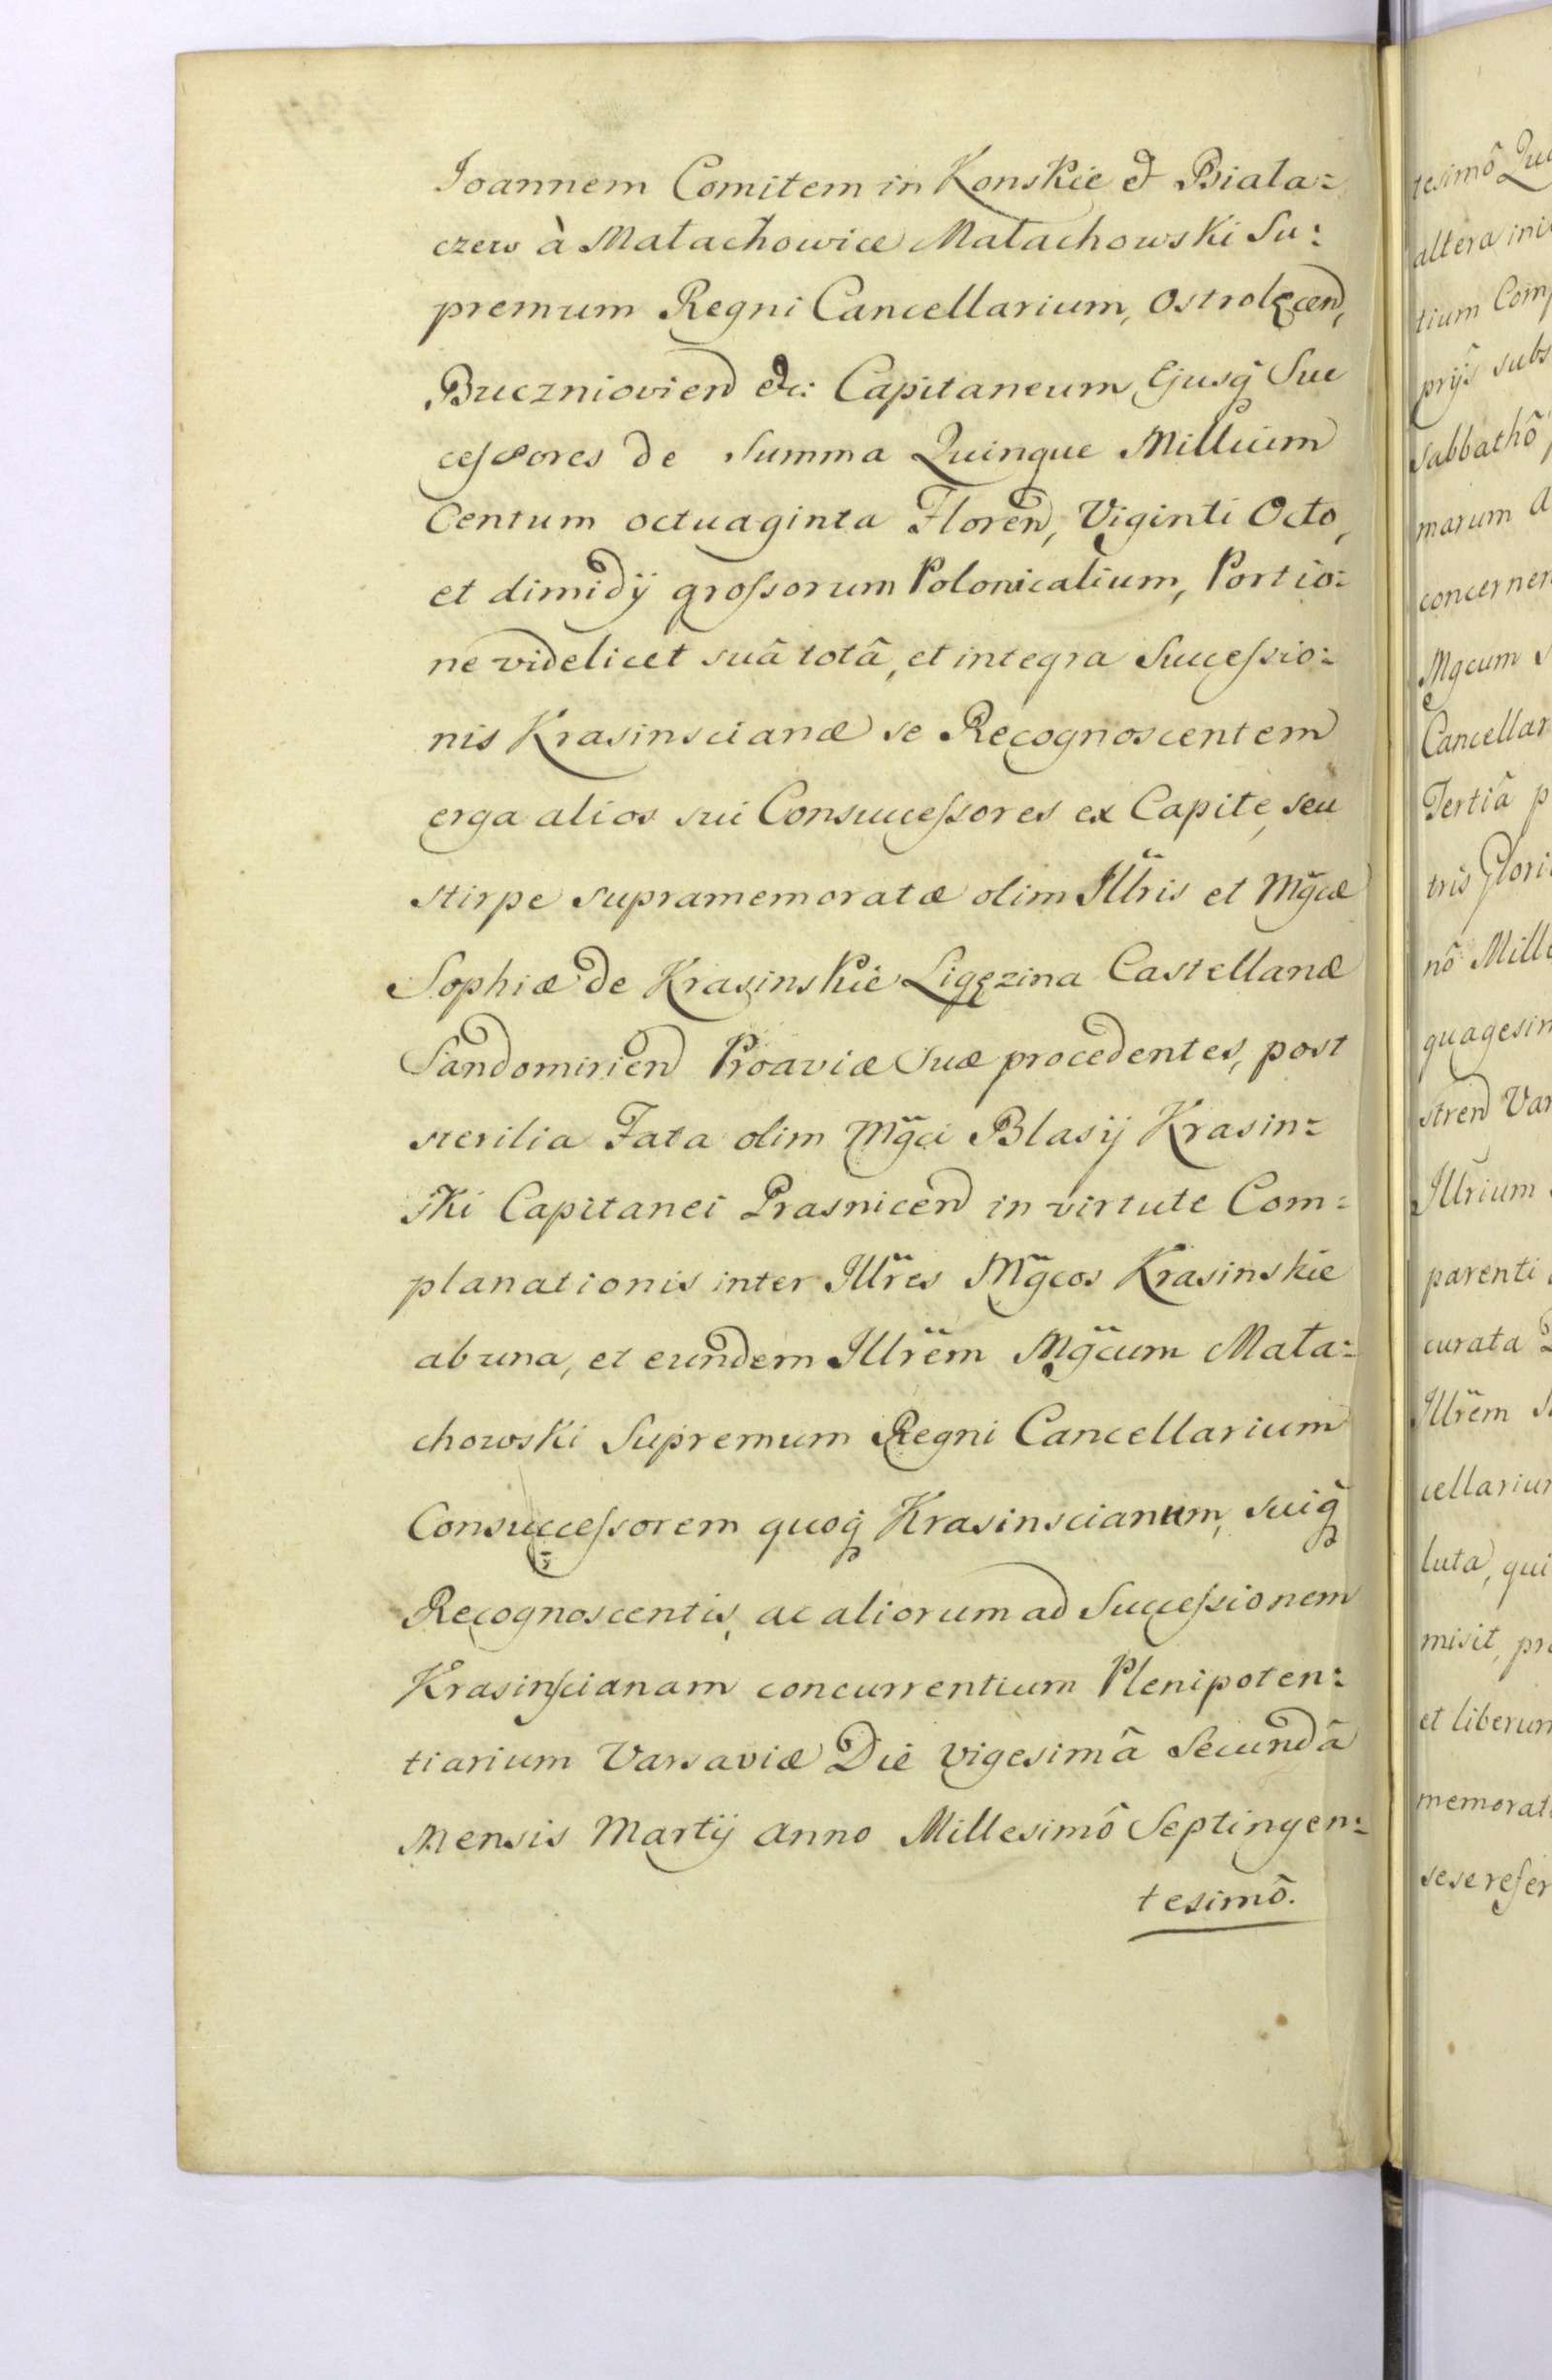 Joannem Comitem in Konskie & Biała=
czew à Małachowice Małachowski Su=
premum Regni Cancellarium, Ostrolęcen,
Buczniovien &c: Capitaneum, Ejusq̃ Suc
cessores de Summa Quinque Millium
Centum octuaginta Floren, Viginti Octo,
et dimidÿ grossorum Polonicalium, Portio=
ne videlicet suâ totâ, et integra Successio=
nis Krasinscianæ se Recognoscentem
erga alios sui Consuccessores ex Capite, seu
stirpe supramemoratæ olim Illris et Mgcæ
Sophiæ de Krasinskie Ligęzina Castellanæ
Sandomirien Proaviæ Suæ procedentes, post
sterilia Fata olim Mgci Blasÿ Krasin=
ski Capitanei Prasnicen in virtute Com=
planationis inter Illres Mgcos Krasinskie
ab una, et eundem Illrem Mgcum Mała=
chowski Supremum Regni Cancellarium
Consuccessorem quoq̃ Krasinscianum, suiq̃
Recognoscentis, ac aliorum ad Successionem
Krasinscianam concurrentium Plenipoten=
tiarium Varsaviæ Die vigesimâ Secundâ
Mensis Martÿ Anno Millesimô Septingen=
tesimô.
tesimô Qua
altera ini
tium Comp
prÿs subs
Sabbathô
marum a
concernen
Mgcum S
Cancellar
Tertiâ p
tris Glori
nô Mille
quagesim
stren Var
Illrium
parenti
curata
Illrem S
cellarium
luta, qui
misit, pro
et liberum
memorat
sese refer